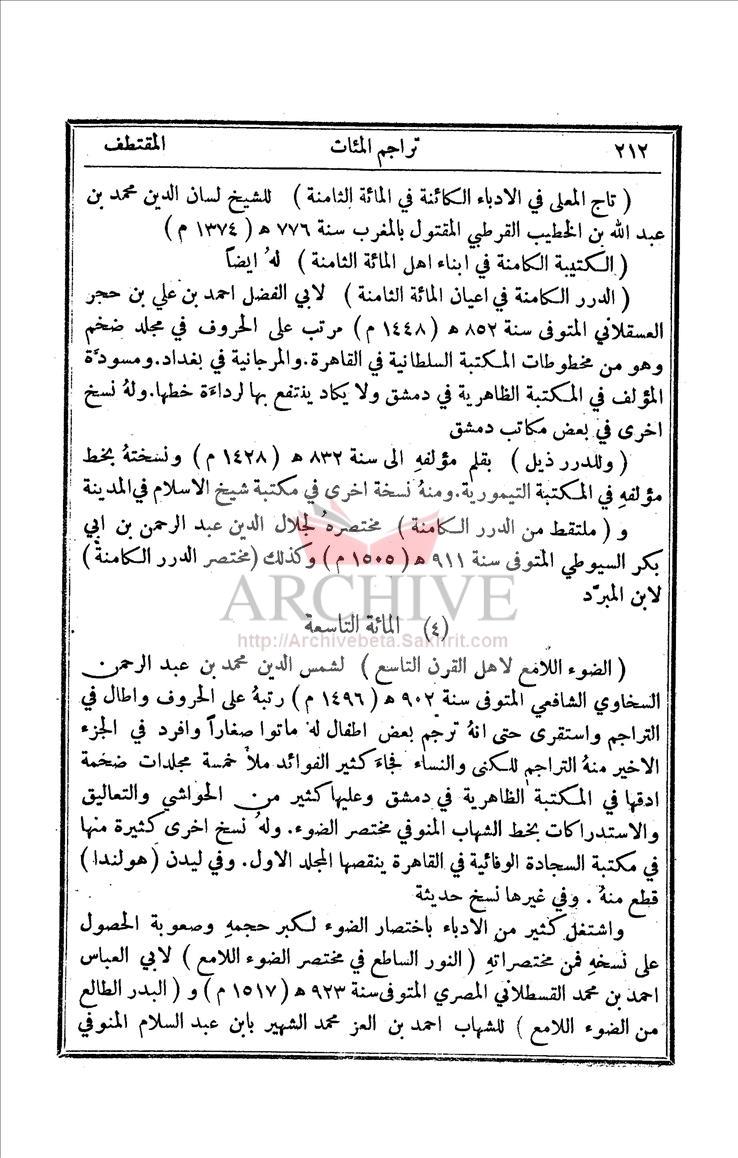 ٢١٢ تراجم المئات المقتطف
( تاج المعلى في الادباء الكائنة في المائة الثامنة ) للشيخ لسان الدين محمد بن
عبد الله بن الخطيب القرطبي المقتول بالمغرب سنة ٧٧٦ ﻫ ( ١٣٧٤ م )
( الكتيبة الكامنة في ابناء اهل المائة الثامنة ) لهُ ايضاً
( الدرر الكامنة في اعيان المائة الثامنة ) لابي الفضل احمد بن علي بن حجر
العسقلاني المتوفى سنة ٨٥٢ ﻫ ( ١٤٤٨ م ) مرتب على الحروف في مجلد ضخم
وهو من مخطوطات المكتبة السلطانية في القاهرة.والمرجانية في بغداد.ومسودَّة
المؤلف في المكتبة الظاهرية في دمشق ولا يكاد ينتفع بها لرداءَة خطها.ولهُ نسخ
اخرى في بعض مكاتب دمشق
( وللدرر ذيل ) بقلم مؤلفهِ الى سنة ٨٣٢ ﻫ ( ١٤٢٨ م ) ونسختهُ بخط
مؤلفهِ في المكتبة التيمورية.ومنهُ نسخة اخرى في مكتبة شيخ الاسلام في المدينة
و ( ملتقط من الدرر الكامنة ) مختصرهُ لجلال الدين عبد الرحمن بن ابي
بكر السيوطي المتوفى سنة ٩١١ ﻫ ( ١٥٠٥ م ) وكذلك (مختصر الدرر الكامنة )
لابن المبرّد
ARCHIVE
(٤) المائة التاسعة
http://Archivebeta.Sakhrit.com
( الضوء اللامع لاهل القرن التاسع ) لشمس الدين محمد بن عبد الرحمن
السخاوي الشافعي المتوفى سنة ٩٠٢ ﻫ ( ١٤٩٦ م ) رتبهُ على الحروف واطال في
التراجم واستقرى حتى انهُ ترجم بعض اطفال لهُ ماتوا صغاراً وافرد في الجزء
الاخير منهُ التراجم للكنى والنساء فجاءَ كثير الفوائد ملأ خمسة مجلدات ضخمة
ادقها في المكتبة الظاهرية في دمشق وعليها كثير من الحواشي والتعاليق
والاستدراكات بخط الشهاب المنوفي مختصر الضوء. ولهُ نسخ اخرى كثيرة منها
في مكتبة السجادة الوفائية في القاهرة ينقصها المجلد الاول. وفي ليدن ( هولندا )
قطع منهُ . وفي غيرها نسخ حديثة
واشتغل كثير من الادباء باختصار الضوء لكبر حجمهِ وصعوبة الحصول
على نسخهِ فمن مختصراتهِ ( النور الساطع في مختصر الضوء اللامع ) لابي العباس
احمد بن محمد القسطلاني المصري المتوفى سنة ٩٢٣ ﻫ ( ١٥١٧ م ) و ( البدر الطالع
من الضوء اللامع ) للشهاب احمد بن العز محمد الشهير بابن عبد السلام المنوفي